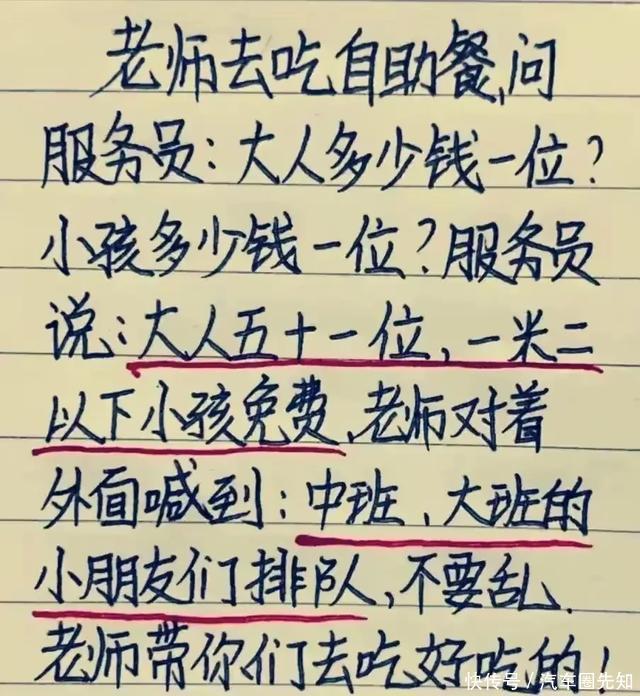 老师去吃自助餐,问
服务员:大人多少钱一位?
小孩多少钱一位?服务员
说:大人五十一位,一米二
以下小孩免费,老师对着
外面喊到:中班、大班的
小朋友们排队,不要乱.
老师带你们去吃好吃的!
快传号/汽车圈先知